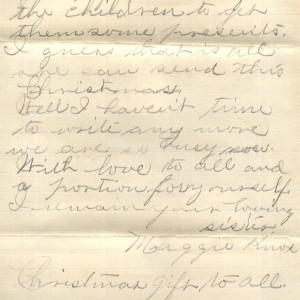 the children to get
them some presents.
I guess that is all
we can send this
Christmas.
Well I haven't time
to write any more
we are so busy now.
With love to all and
a portion for yourself
I remain your loving
sister.
Maggie Knox
Christmas gift to all.